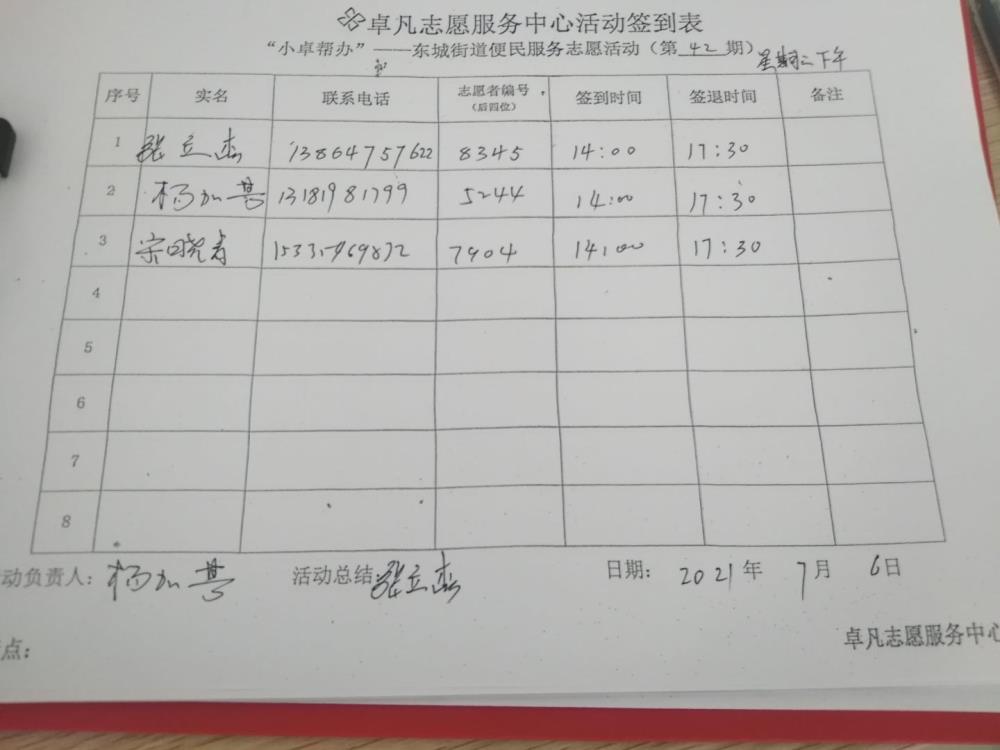 卓凡志愿服务中心活动签到表
“小卓帮办”——东城街道便民服务志愿活动（第 42 期）
星期二下午
序号 实名 联系电话 志愿者编号（后四位） 签到时间 签退时间 备注
1 张立杰 13864757622 8345 14:00 17:30
2 杨加营 13181981799 5244 14:00 17:30
3 宋晓青 7904 14:00 17:30
4
5
6
7
8
动负责人：杨加营 活动总结 张立杰 日期： 2021 年 7 月 6 日
点：
卓凡志愿服务中心